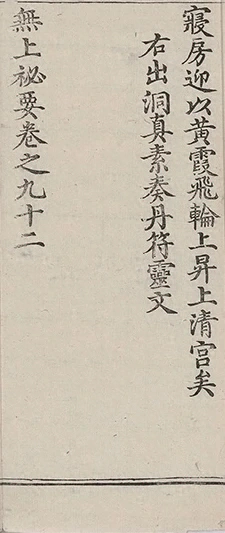 寢房迎以黃霞飛輪上昇上清宮矣
右出洞真素奏丹符靈文
無上祕要卷之九十二